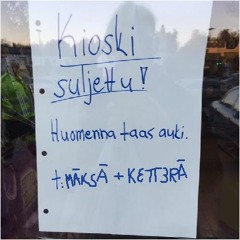 Kioski
suljettu!
Huomenna taas auki.
t: MÄKSÄ + KETTERÄ